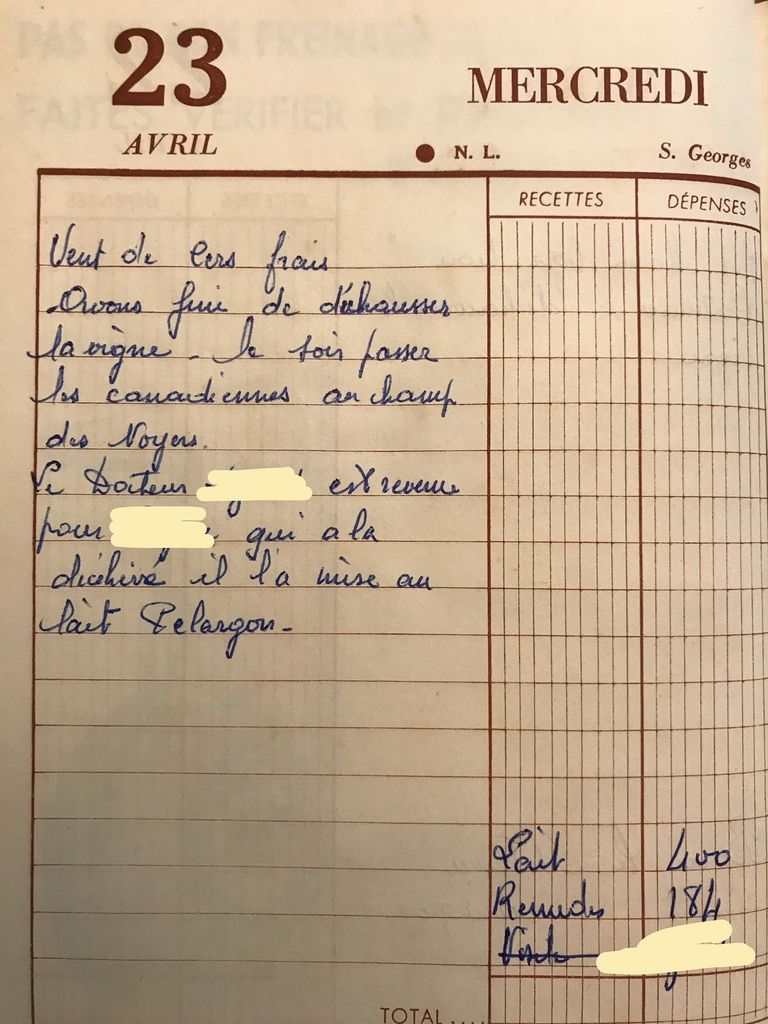 23
MERCREDI
AVRIL
N. L.
S. Georges
RECETTES
DÉPENSES
Vent de Cers frais
Avons fini de déchausser
la vigne - le soir passer
les canadiennes au champ
des Noyers.
Le Docteur est revenu
pour qui a la
diahrré il l'a mise au
lait Pelargon -
Lait 400
Remedes 184
Visite
TOTAL ....